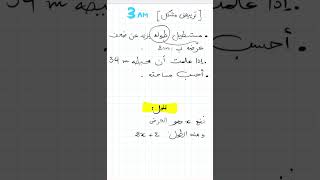 3AM [تريض مشكل]
• مستطيل طوله يزيد عن ضعف
عرضه بـ 2m.
• إذا علمت أن محيطه 34 m
• أحسب مساحته.
الحل:
نضع x هو العرض
ومنه الطول 2x+2